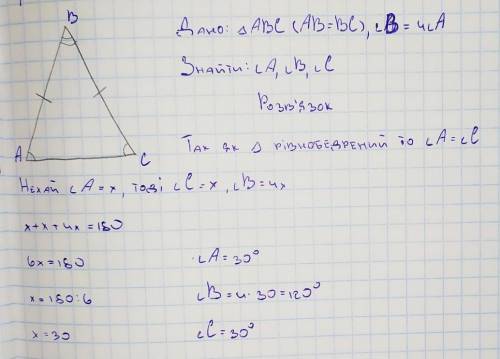 B
Дано: △ABC (AB=BC), ∠B=4∠A
Знайти: ∠A, ∠B, ∠C
Розв'язок
A C
Так як △ рівнобедрений то ∠A=∠C
Нехай ∠A=x, тоді ∠C=x, ∠B=4x
x+x+4x=180
6x=180
x=180:6
x=30
∠A=30°
∠B=4·30=120°
∠C=30°